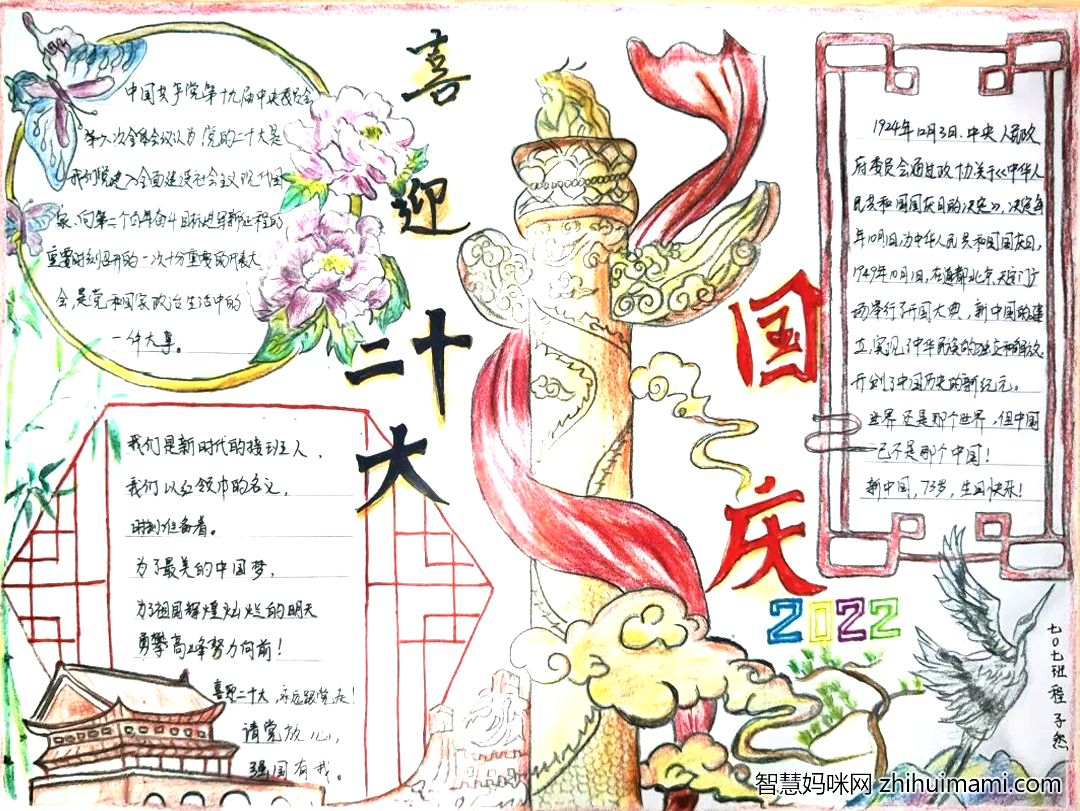 喜迎二十大
国庆
2022
中国共产党第十九届中央委员会
第六次全体会议认为,党的二十大是
我们党进入全面建设社会主义现代国
家、向第二个百年奋斗目标进军新征程的
重要时刻召开的一次十分重要的代表大
会,是党和国家政治生活中的
一件大事。
我们是新时代的接班人,
我们以红领巾的名义,
时刻准备着。
为了最美的中国梦,
为了祖国辉煌灿烂的明天
勇攀高峰努力向前!
喜迎二十大,永远跟党走!
请党放心,
强国有我。
1924年12月3日,中央人民政
府委员会通过政协关于《中华人
民共和国国庆日的决定》,决定每
年10月1日为中华人民共和国国庆日,
1949年10月1日,在首都北京天安门广
场举行了开国大典,新中国的建
立,实现了中华民族的独立和解放
开创了中国历史的新纪元。
世界还是那个世界,但中国
已不是那个中国!
新中国,73岁,生日快乐!
七〇七班 程子然
智慧妈咪网 zhihuimami.com